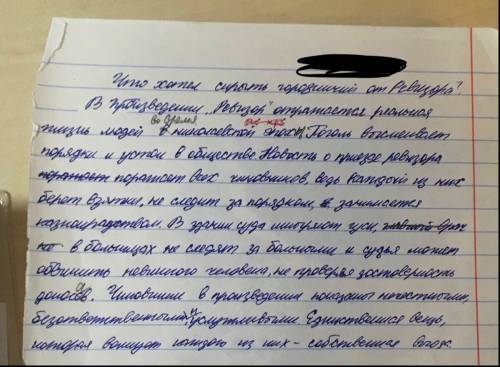 Что хотел скрыть городничий от Ревизора?
В произведении "Ревизор" отражается реальная
во время
жизнь людей в николаевской эпохи. Гоголь высмеивает
порядки и устои в обществе. Новость о приезде ревизора
поражает всех чиновников, ведь каждый из них
берет взятки, не следит за порядком, занимается
казнокрадством. В здании суда шныряют гуси,
в больницах не следят за больными и судья может
обвинить невинного человека, не проверяя достоверность
доносов. Чиновники в произведении показаны нечестными,
безответственными и Единственная вещь,
которая волнует каждого из них - собственная